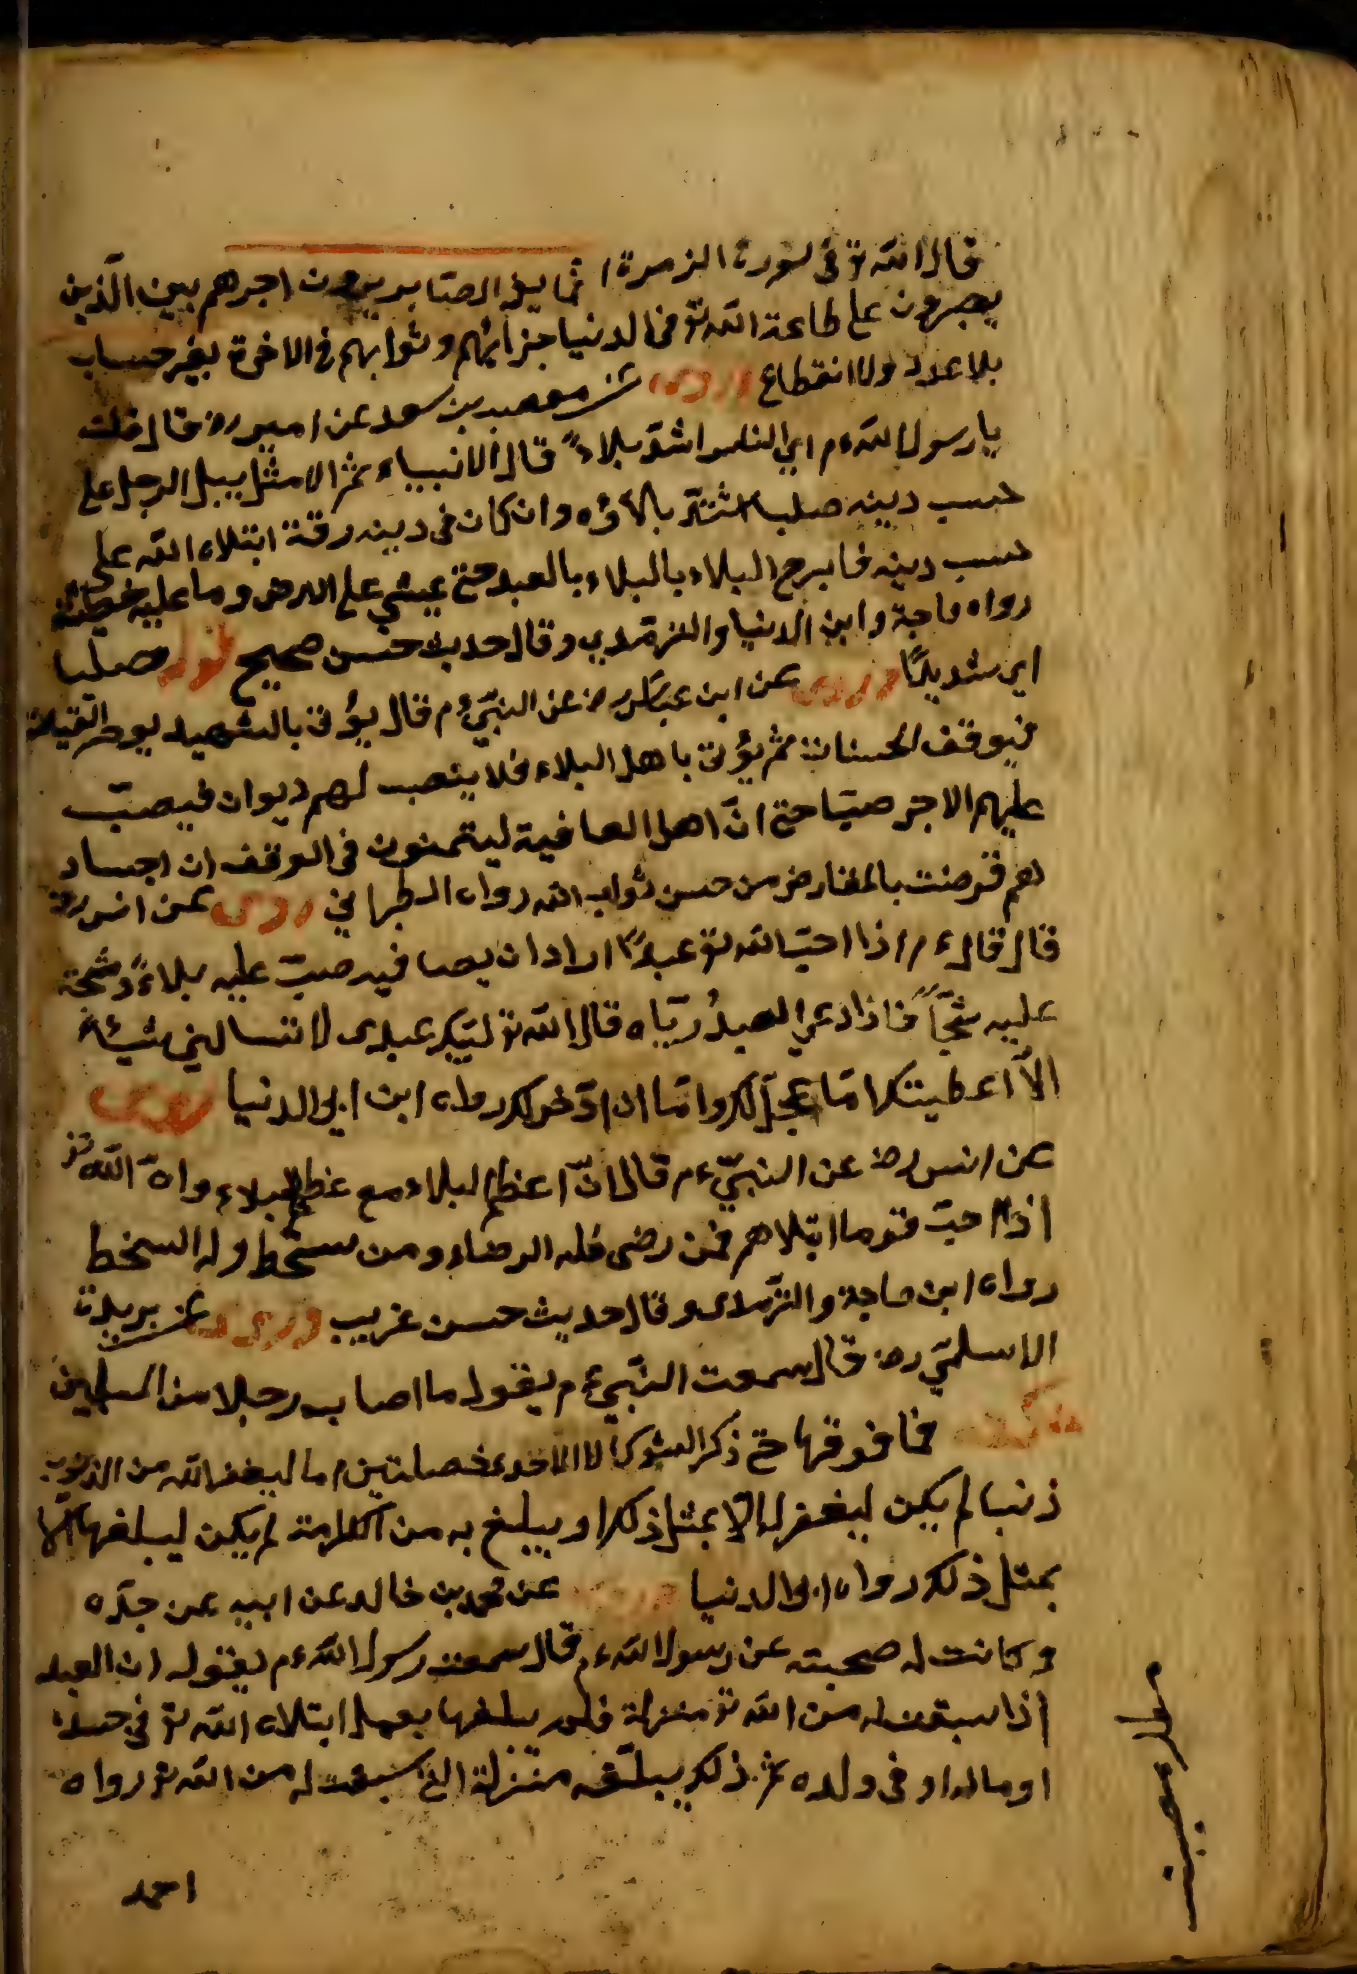 قال الله تع فى سورة الزمرة انما يوفى الصابرون اجرهم يعنى الذين
يصبرون على طاعة الله تع فى الدنيا جزائهم وثوابهم فى الاخرة بغير حساب
بلا عدد ولا انقطاع وروى عن مصعب بن سعد عن ابيه رض قال قلت
يا رسول الله ء م اي الناس اشد بلاءً قال الانبياء ثم الامثل يبتلى الرجل على
حسب دينه صلبا اشتد بلاؤه وان كان فى دينه رقة ابتلاه الله على
حسب دينه فما يبرح البلاء بالبلاء بالعبد حتى يمشي على الارض وما عليه خطيئة
رواه ماجة وابن الدنيا والترمذي وقال حديث حسن صحيح قوله صلبا
اي شديدًا وروى عن ابن عباس رض عن النبي ء م قال يؤتى بالشهيد يوم القيامة
فيوقف للحسنات ثم يؤتى باهل البلاء فلا ينصب لهم ديوان فيصبّ
عليهم الاجر صبّا حتى انّ اهل العافية ليتمنون فى الموقف ان اجساد
لهم قرضت بالمقارض من حسن ثواب الله رواه الطبراني روى عن انس رض
قال قال ء م اذا احبّ الله تع عبدًا اراد ان يصافيه صبّ عليه بلاءً وثجّه
عليه ثجّاً فاذا دعى العبدُ ربّاه قال الله تع لبّيك عبدى لا تسالني شيئاً
الاّ اعطيتك امّا عجّل لك وامّا ان ادّخر لك رواه ابن ابى الدنيا روى
عن انس رض عن النبيّ ء م قال انّ اعظم البلاء مع عظم البلاء وانّ الله تع
اذا احبّ قوما ابتلاهم فمن رضى فله الرضاء ومن سخط وله السخط
رواه ابن ماجة والترمذى وقال حديث حسن غريب وروى عن بريدة
الاسلميّ رض قال سمعت النبّي ء م يقول ما اصاب رجلا من المسلمين
فما فوقها حتى ذكر الشوكة الا لاحدى خصلتين اما ليغفر الله من الذنوب
ذنبا لم يكن ليغفر له الاّ بمثل ذلك او يبلغ به من الكرامة لم يكن ليبلغها الّا
بمثل ذلك رواه ابى الدنيا وروى عن محمد بن خالد عن ابيه عن جدّه
وكانت له صحبته عن رسول الله ء م قال سمعت رسول الله ء م يقول ان العبد
اذا سبقت له من الله تع منزلة فلم يبلغها بعمل ابتلاه الله تع في جسده
او ماله او فى ولده ثم ذلك يبلّغه منزلة التى سبقت له من الله تع رواه
احمد